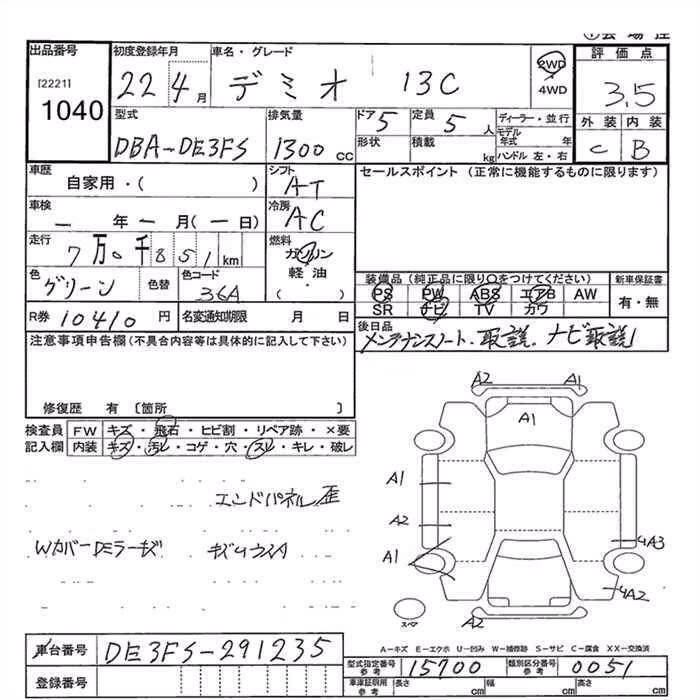 出品番号 初度登録年月 車名・グレード 2WD 評価点
[2221]
1040 22 4月 デミオ 13C 4WD 3.5
型式 排気量 ドア 定員 ディーラー・並行 外装 内装
DBA-DE3FS 1300cc 5 5人 モデル年式 年 C B
形状 積載 kg ハンドル 左・右
車歴 シフト セールスポイント (正常に機能するものに限ります)
自家用・( ) AT
車検 冷房
ー 年 ー 月(ー 日) AC
走行 燃料
7万0千851km ガソリン
軽油・
( )
色 色替 色コード 装備品(純正品に限り〇をつけてください) 新車保証書
グリーン 36A PS PW ABS エアB AW 有・無
SR ナビ TV カワ
R券 10410円 名変通知期限 月 日 後日品
メンテナンスノート. 取説. ナビ取説
注意事項申告欄(不具合内容等は具体的に記入して下さい)
修復歴 有 〔箇所 〕
検査員 FW キズ・飛石・ヒビ割・リペア跡・×要
記入欄 内装 キズ・汚レ・コゲ・穴・スレ・キレ・破レ
A2 A1
A1
A1
エンドパネル歪
A2
A1 A3
A2
スマ A2
A-キズ E-エクボ U-凹み W-補修跡 S-サビ C-腐食 XX-交換済
車台番号 DE3FS-291235
型式指定番号 参考 15700 類別区分番号 参考 0051
登録番号
車車証明用 参考 長さ cm 幅 cm 高さ cm